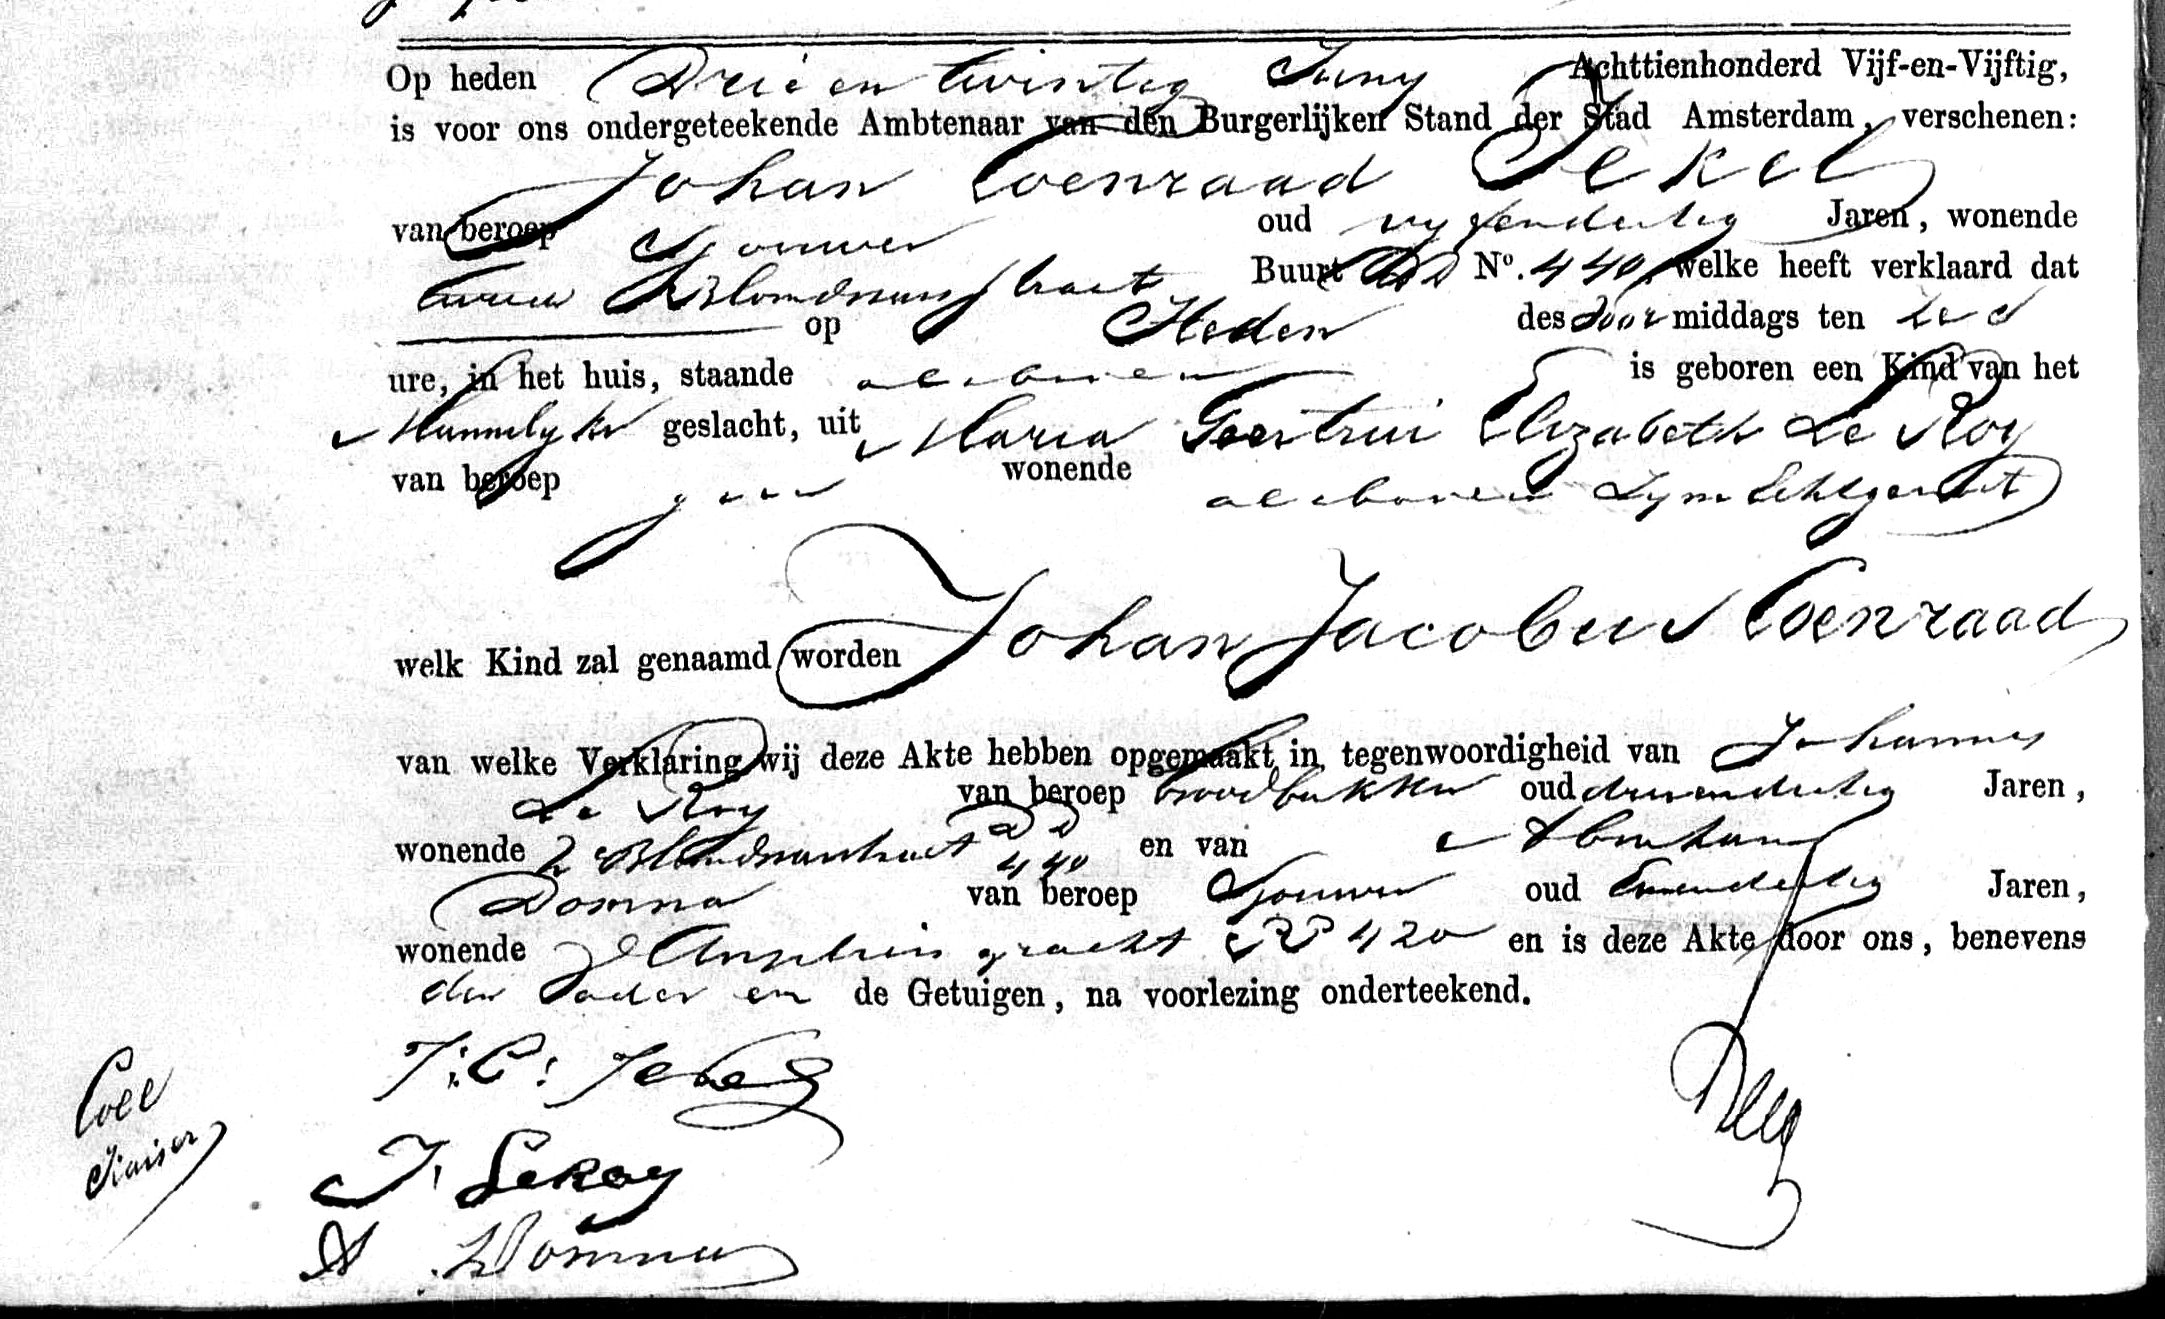 Op heden Drie en twintig Juny Achttienhonderd Vijf-en-Vijftig,
is voor ons ondergeteekende Ambtenaar van den Burgerlijken Stand der Stad Amsterdam, verschenen:
Johan Coenraad Jekel
van beroep Sjouwer oud vyfendertig Jaren, wonende
Buurt DD No. 440, welke heeft verklaard dat
op Heden des Voor middags ten
ure, in het huis, staande alsboven is geboren een Kind van het
Mannelyke geslacht, uit Maria Geertrui Elizabeth Le Roy
van beroep geen wonende alsboven zyne Echtgenoot
welk Kind zal genaamd worden Johan Jacobus Coenraad
van welke Verklaring wij deze Akte hebben opgemaakt in tegenwoordigheid van Johannes
Le Roy van beroep broodbakker oud drieendertig Jaren,
wonende 2 Blomdwarsstraat DD 440 en van Abraham
Domna van beroep Sjouwer oud Eenendertig Jaren,
wonende gracht 420 en is deze Akte door ons, benevens
den Vader en de Getuigen, na voorlezing onderteekend.
J: C: Jekel
J. LeRoy
A Domna